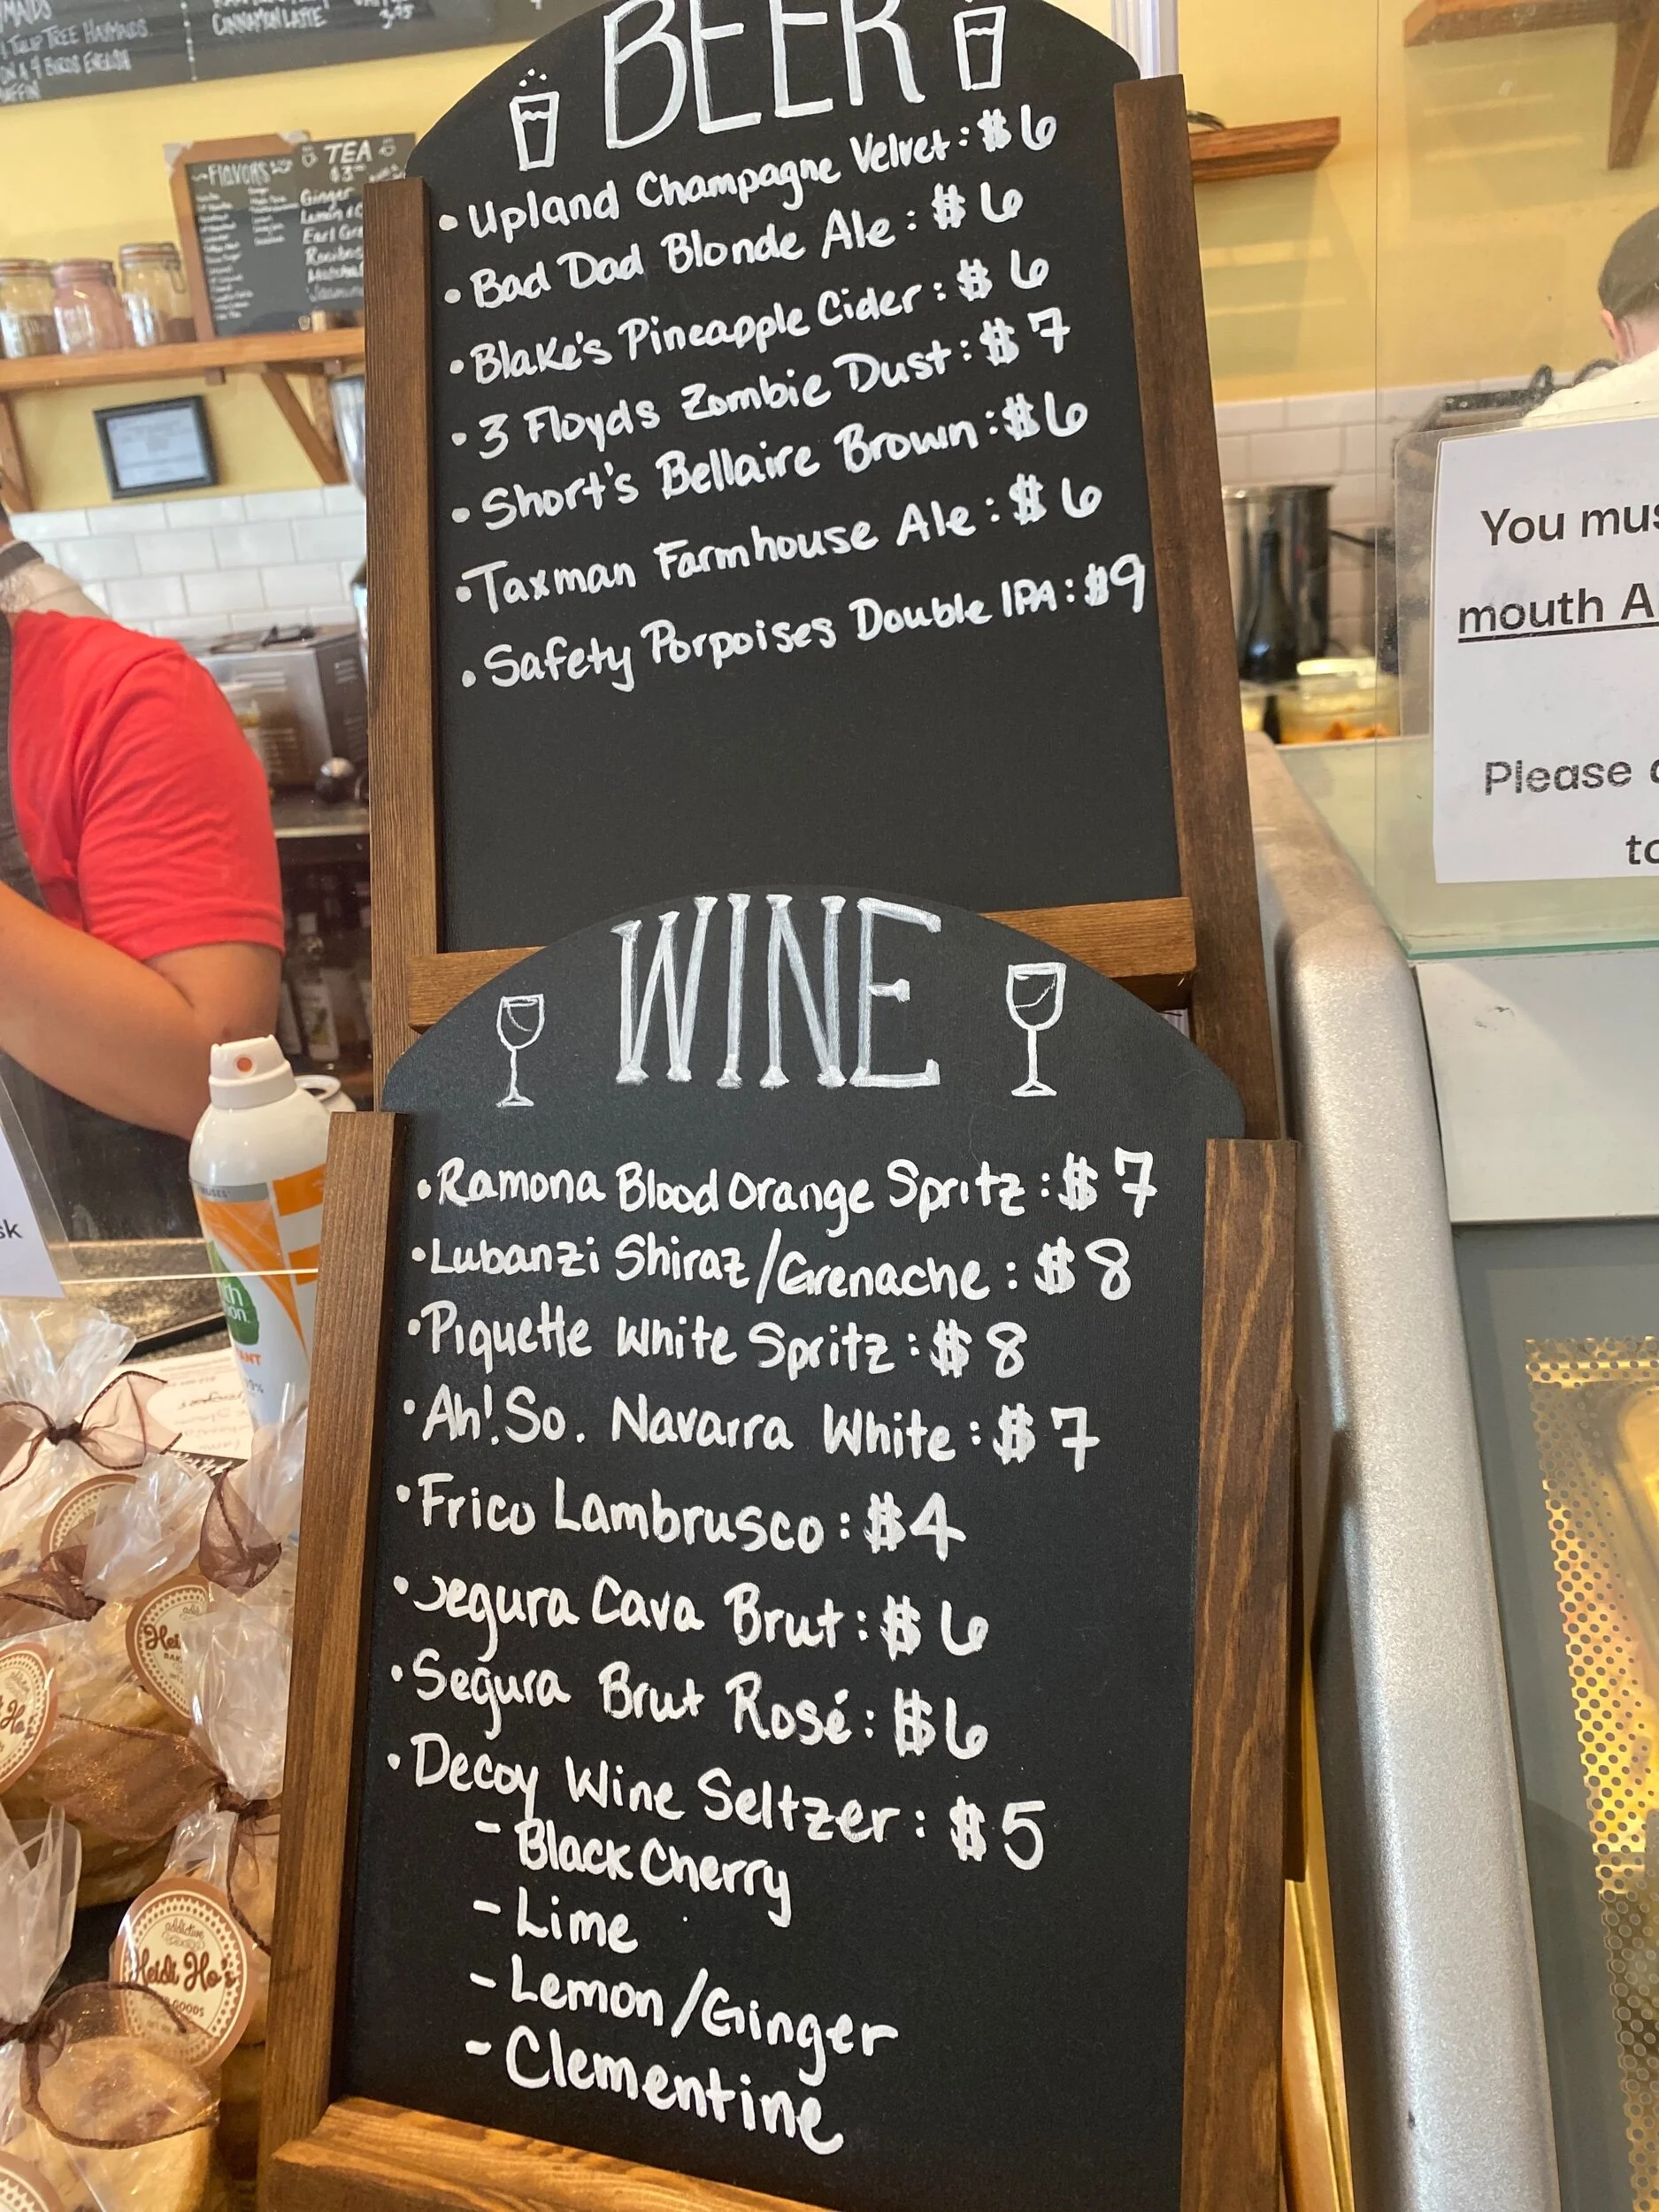 TULIP TREE HAYMAIDS
ON A 4 BIRDS ENGLISH
CINNAMON LATTE
FLAVORS
TEA
Ginger
Earl
BEER
• Upland Champagne Velvet: $6
• Bad Dad Blonde Ale: $6
• Blake's Pineapple Cider: $6
• 3 Floyds Zombie Dust: $7
• Short's Bellaire Brown: $6
• Taxman Farmhouse Ale: $6
• Safety Porpoises Double IPA: $9
WINE
• Ramona Blood Orange Spritz: $7
• Lubanzi Shiraz/Grenache: $8
• Piquette White Spritz: $8
• Ah! So. Navarra White: $7
• Frico Lambrusco: $4
• Segura Cava Brut: $6
• Segura Brut Rosé: $6
• Decoy Wine Seltzer: $5
- Black Cherry
- Lime
- Lemon/Ginger
- Clementine
You mus
mouth A
Please
to
sk
addictive
Heidi Ho's
GOODS